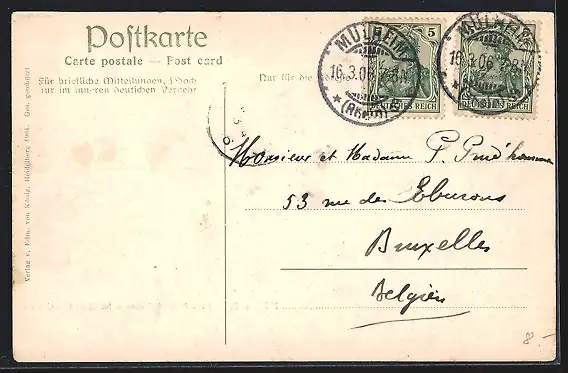 Postkarte
Carte postale — Post card
Für briefliche Mitteilungen, jedoch
nur im inneren deutschen Verkehr
Nur für die
5
DEUTSCHES REICH
DEUTSCHES REICH
MÜLHEIM
16.3.06.7-8N
*(RHEIN)
MÜLHEIM
16.3.06.7-8N
*(RHEIN)
Monsieur et Madame P. Prud'homme
53 rue des Eburons
Bruxelles
Belgien
Verlag v. Edm. von König, Heidelberg 1904. Ges. geschützt
8.-